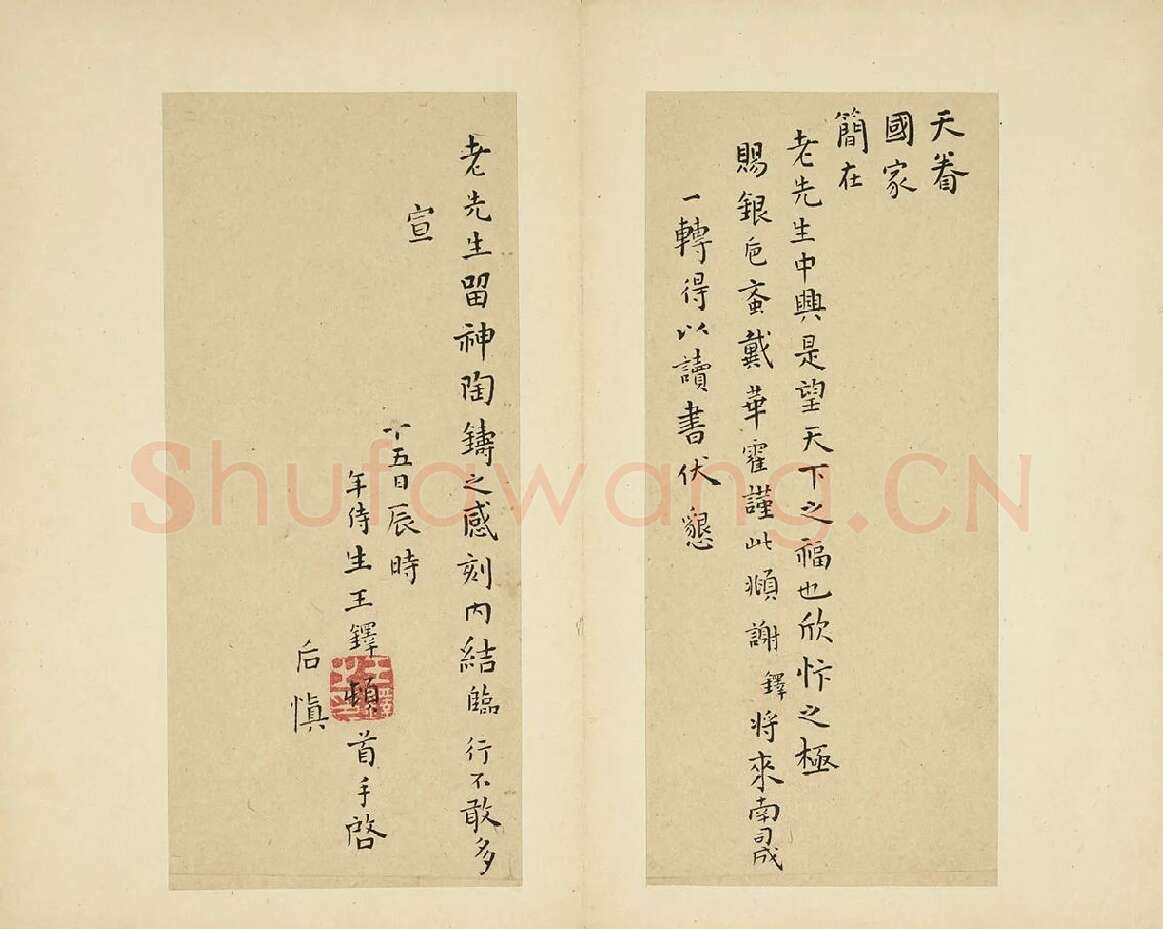 天眷
國家
簡在
老先生中興是望天下之福也欣忭之極
賜銀卮蚉戴華寵謹此頫謝鐸將來南司成
一轉得以讀書伏懇
老先生留神陶鑄之感刻內結臨行不敢多
宣
十五日辰時
年侍生王鐸頓首手啓
后慎
Shufawang.CN